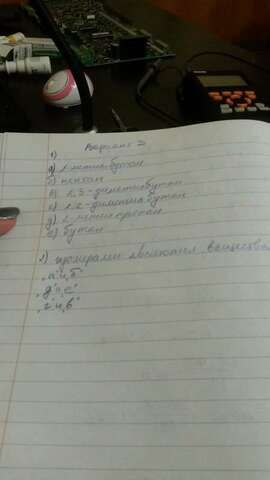 Вариант 2
1)
а) 2-метилбутан
б) пентан
в) 2,3-диметилбутан
г) 2,2-диметилбутан
д) 2-метилпропан
е) бутан
2) изомерами являются вещества
„а“и„б“
„д“и„е“
„г“и„в“